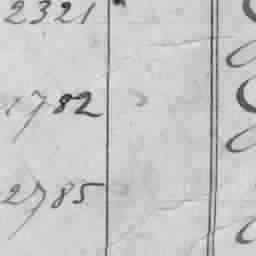 2321
1782
2785